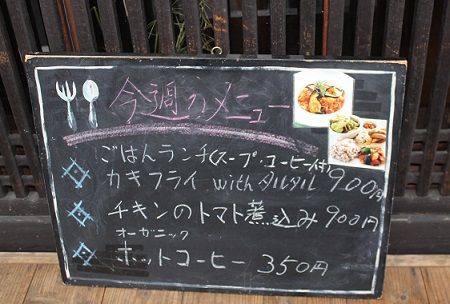 今週のメニュー
ごはんランチ(スープ・コーヒー付)
カキフライ with タルタル 900円
チキンのトマト煮込み 900円
オーガニック
ホットコーヒー 350円